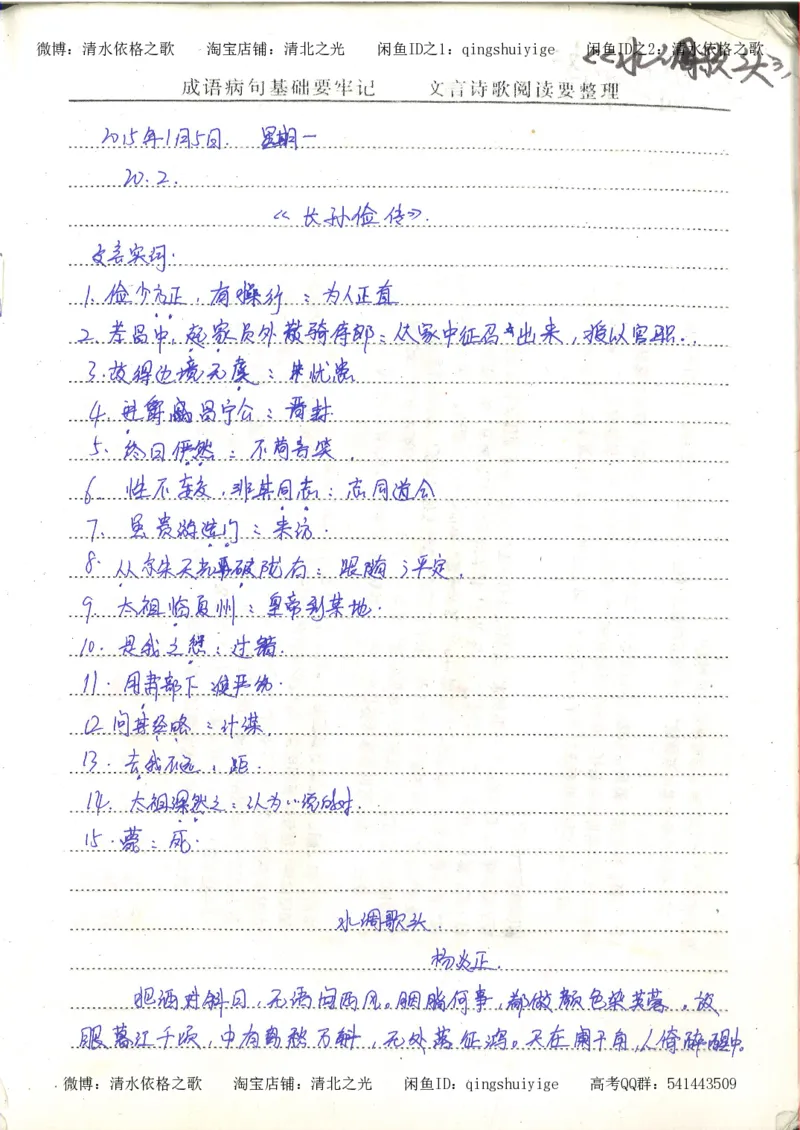 微博：清水依格之歌 淘宝店铺：清北之光 闲鱼ID之1：qingshuiyige 闲鱼ID之2：清水依格之歌
《水调歌头》
成语病句基础要牢记 文言诗歌阅读要整理
2015年1月5日. 星期一
20.2.
《长孙俭传》.
文言实词.
1. 俭少方正，有操行：为人正直
2. 孝昌中，起家员外散骑侍郎：从家中征召出来，授以官职.
3. 故得边境无虞：忧患
4. 进爵昌宁公：晋封
5. 终日俨然：不苟言笑.
6. 性不妄交，非其同志：志同道合
7. 虽贵游造门：来访.
8. 从尔朱天光破陇右：跟随；平定.
9. 太祖临夏州：皇帝到某地.
10. 是我之愆：过错.
11. 用肃部下
12. 问其经略：计谋.
13. 去我不远：距.
14. 太祖深然之：认为…是对.
15. 薨：死.
水调歌头.
杨炎正.
把酒对斜日，无语问西风。胭脂何事，都做颜色染芙蓉。放
眼暮江千顷，中有离愁万斛，无处落征鸿。天在阑干角，人倚醉醒中。
微博：清水依格之歌 淘宝店铺：清北之光 闲鱼ID：qingshuiyige 高考QQ群：541443509